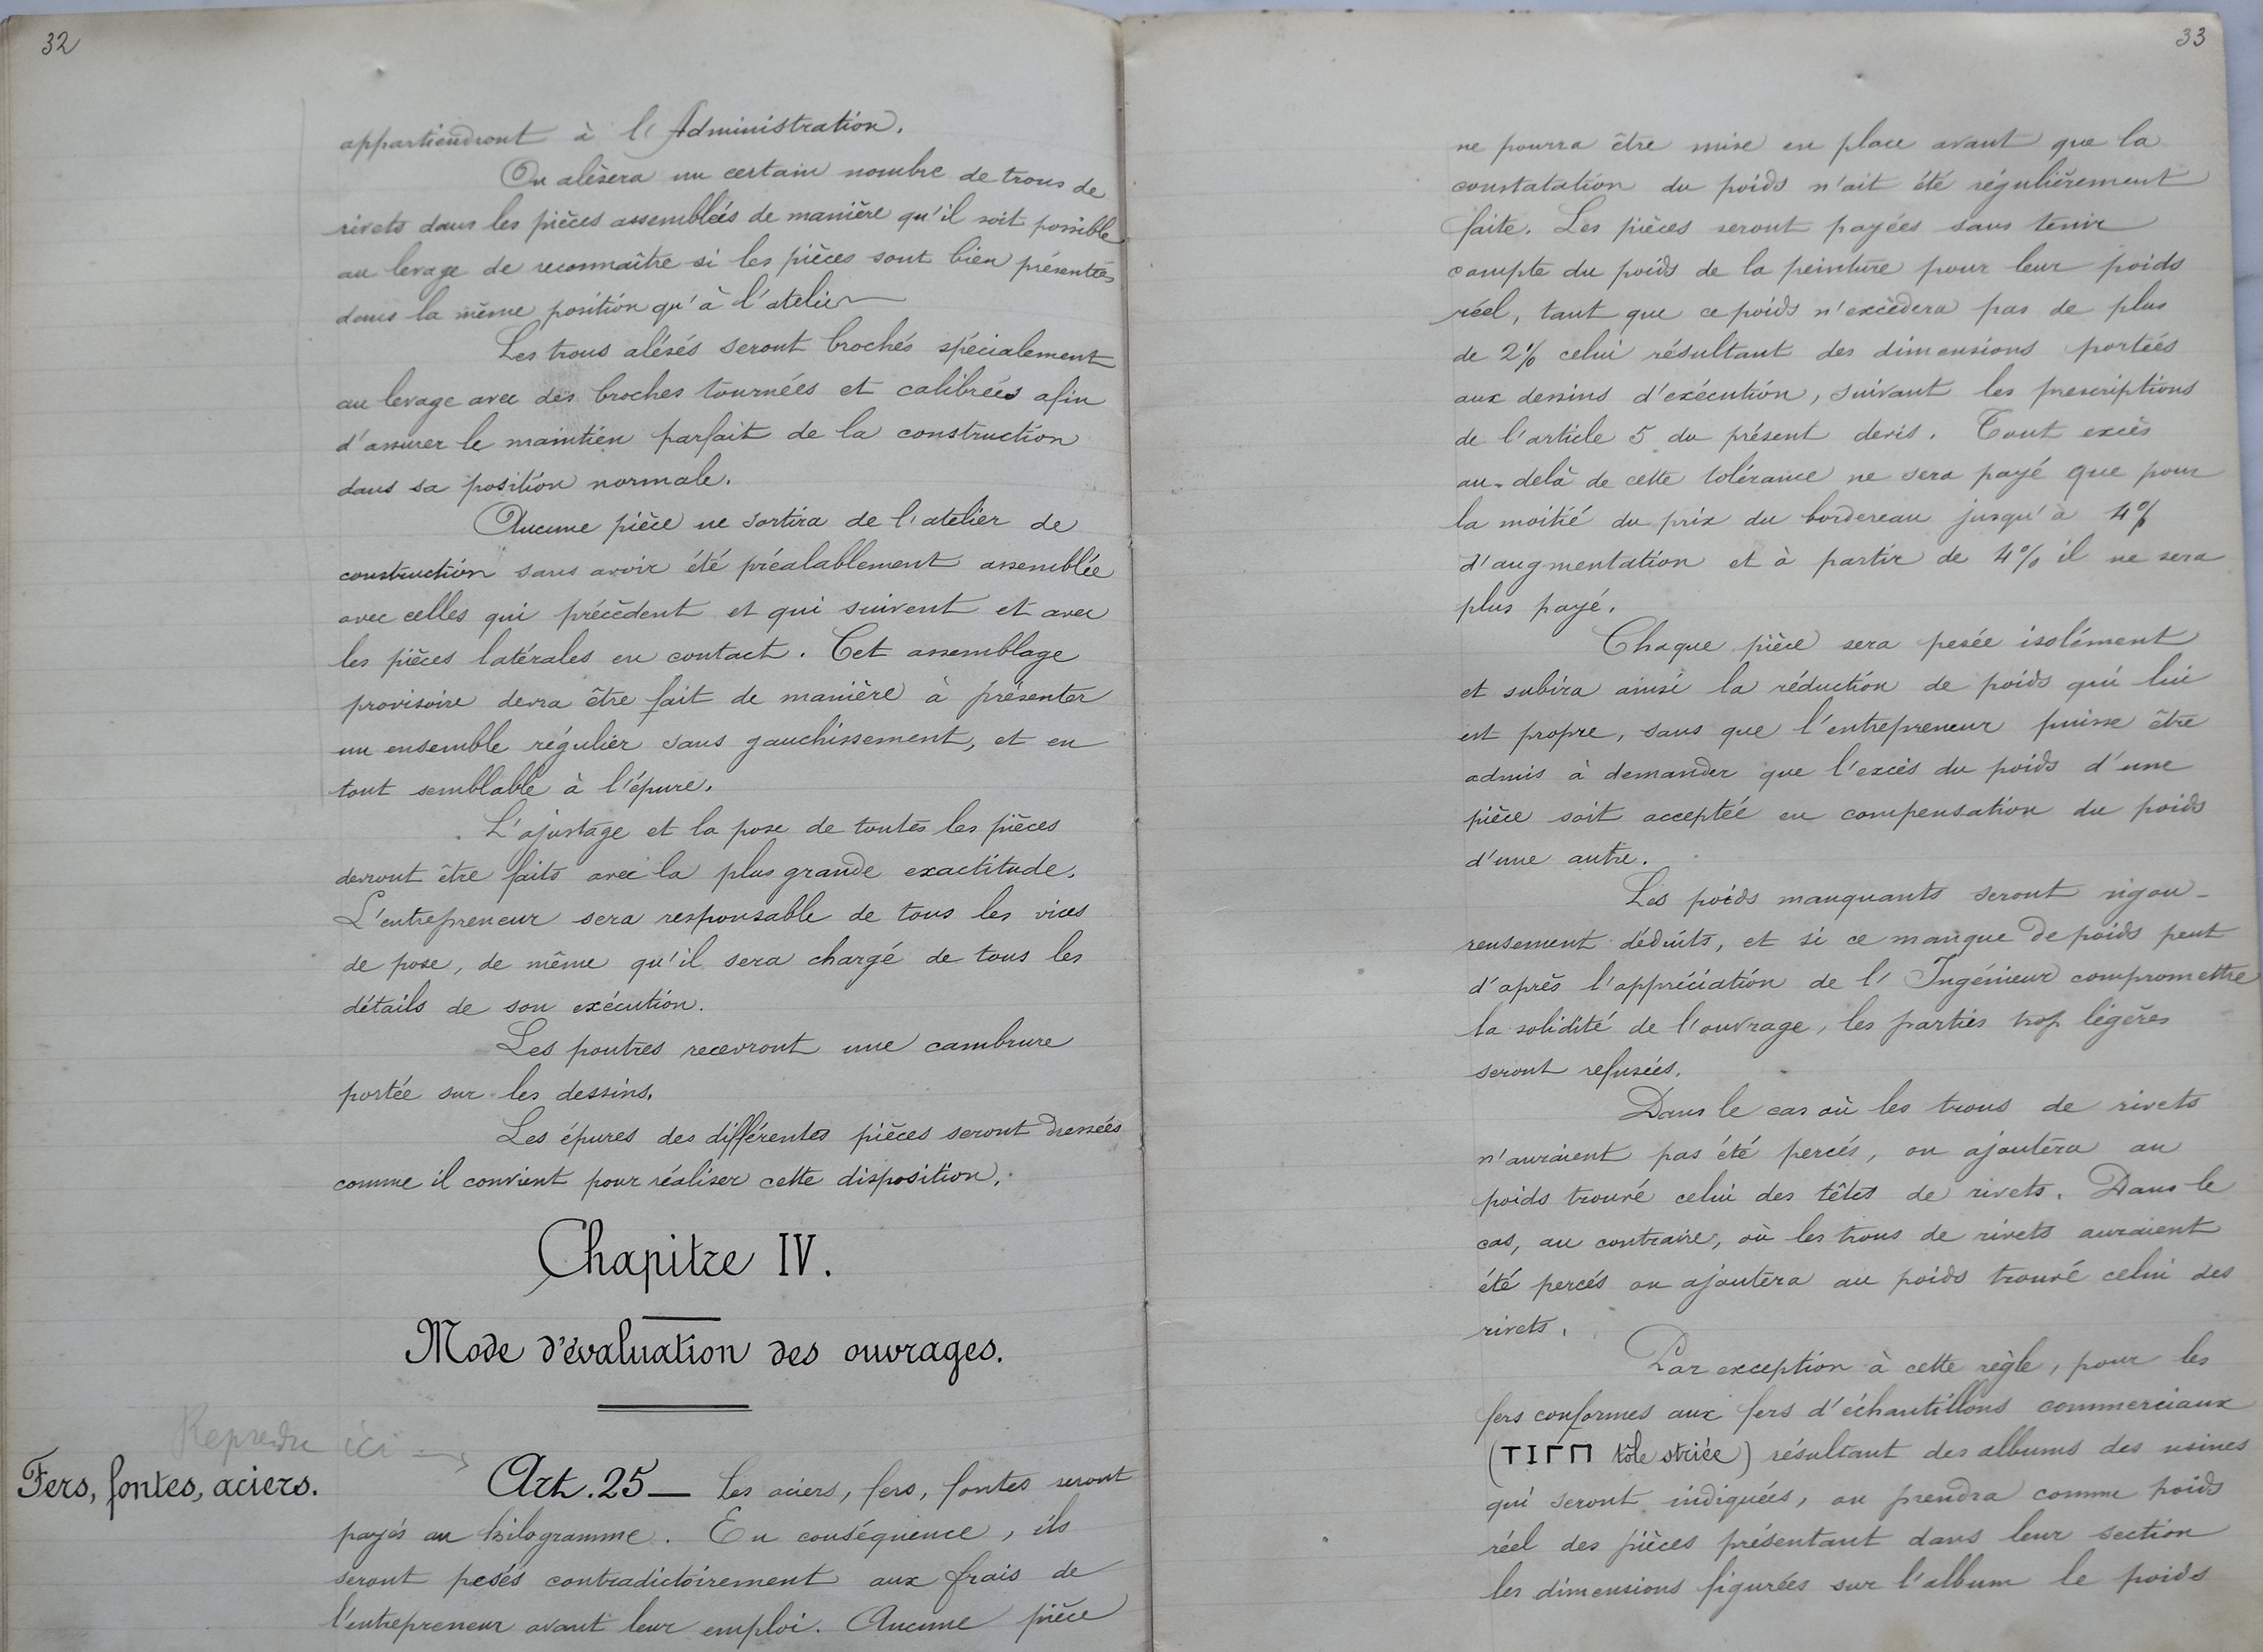 32
appartiendront à l'Administration.
On alèsera un certain nombre de trous de
rivets dans les pièces assemblées de manière qu'il soit possible
au levage de reconnaître si les pièces sont bien présentées
dans la même position qu'à l'atelier
Les trous alésés seront brochés spécialement
au levage avec des broches tournées et calibrées afin
d'assurer le maintien parfait de la construction
dans sa position normale.
Aucune pièce ne sortira de l'atelier de
construction sans avoir été préalablement assemblée
avec celles qui précèdent et qui suivent et avec
les pièces latérales en contact. Cet assemblage
provisoire devra être fait de manière à présenter
un ensemble régulier sans gauchissement, et en
tout semblable à l'épure.
L'ajustage et la pose de toutes les pièces
devront être faits avec la plus grande exactitude.
L'entrepreneur sera responsable de tous les vices
de pose, de même qu'il sera chargé de tous les
détails de son exécution.
Les poutres recevront une cambrure
portée sur les dessins.
Les épures des différentes pièces seront dressées
comme il convient pour réaliser cette disposition.
Chapitre IV.
Mode d'évaluation des ouvrages.
Reprendre ici →
Fers, fontes, aciers.
Art. 25 — Les aciers, fers, fontes seront
payés au kilogramme. En conséquence, ils
seront pesés contradictoirement aux frais de
l'entrepreneur avant leur emploi. Aucune pièce
33
ne pourra être mise en place avant que la
constatation du poids n'ait été régulièrement
faite. Les pièces seront payées sans tenir
compte du poids de la peinture pour leur poids
réel, tant que ce poids n'excèdera pas de plus
de 2% celui résultant des dimensions portées
aux dessins d'exécution, suivant les prescriptions
de l'article 5 du présent devis. Tout excès
au-delà de cette tolérance ne sera payé que pour
la moitié du prix du bordereau jusqu'à 4%
d'augmentation et à partir de 4% il ne sera
plus payé.
Chaque pièce sera pesée isolément
et subira ainsi la réduction de poids qui lui
est propre, sans que l'entrepreneur puisse être
admis à demander que l'excès du poids d'une
pièce soit acceptée en compensation du poids
d'une autre.
Les poids manquants seront rigou-
reusement déduits, et si ce manque de poids peut
d'après l'appréciation de l'Ingénieur compromettre
la solidité de l'ouvrage, les parties trop légères
seront refusées.
Dans le cas où les trous de rivets
n'auraient pas été percés, on ajoutera au
poids trouvé celui des têtes de rivets. Dans le
cas, au contraire, où les trous de rivets auraient
été percés on ajoutera au poids trouvé celui des
rivets.
Par exception à cette règle, pour les
fers conformes aux fers d'échantillons commerciaux
(T I Γ Π tôle striée) résultant des albums des usines
qui seront indiquées, on prendra comme poids
réel des pièces présentant dans leur section
les dimensions figurées sur l'album le poids